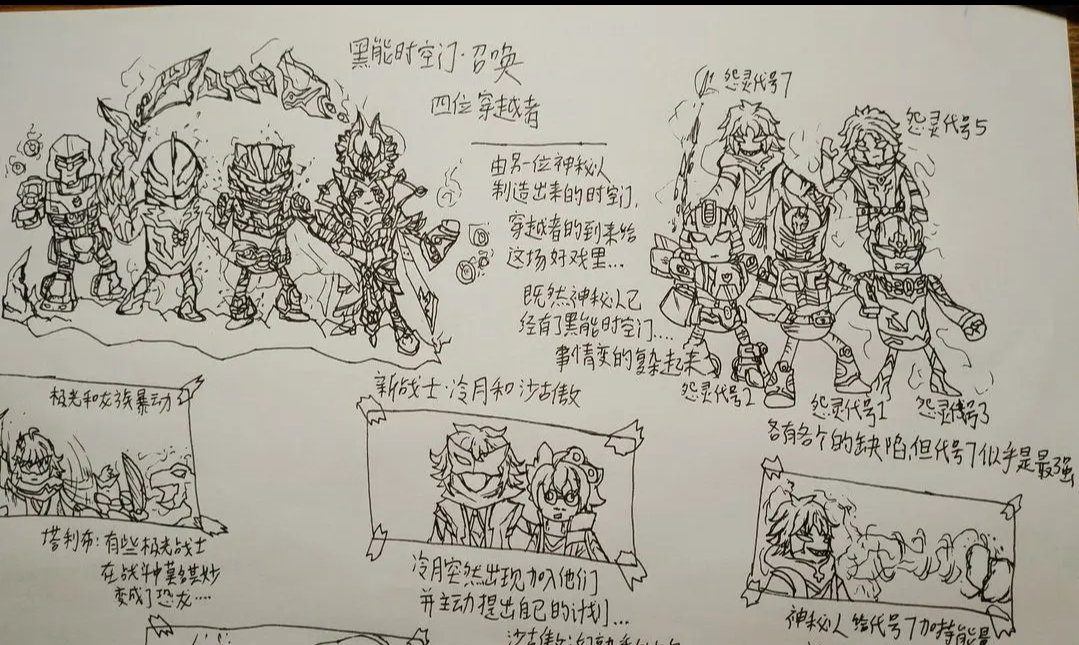 黑能时空门·召唤
四位穿越者
由另一位神秘人
制造出来的时空门,
穿越者的到来给
这场好戏里...
既然神秘人已
经有了黑能时空门....
事情变的复杂起来
怨灵代号7
怨灵代号5
怨灵代号2
怨灵代号1
怨灵代号3
各有各个的缺陷,但代号7似乎是最强
极光和龙族暴动
塔利布:有些极光战士
在战斗中莫名其妙
变成了恐龙....
新战士·冷月和沙古傲
冷月突然出现加入他们
并主动提出自己的计划...
沙古傲
神秘人给代号7加持能量